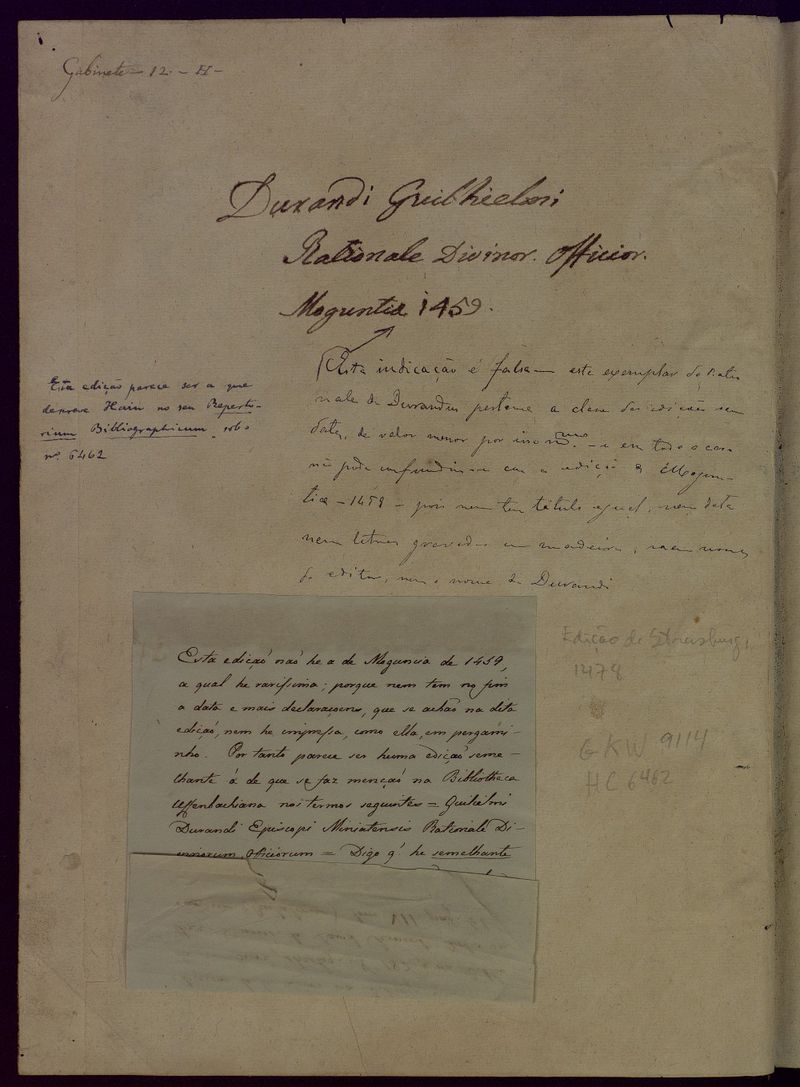 Gabinete - 12 - H -
Durandi Guilhielmi
Rationale Divinor. Officior.
Moguntiæ 1459.
Esta indicação é falsa - este exemplar do Ratio
nale de Durandus pertence a classe das edições sem
data, de valor menor por isso mesmo - e em todo o caso
não pode confundir-se com a edição de Mogun-
tiæ - 1459 - pois nem tem titulo egual, nem data
nem letras gravadas em madeira, nem nome
do editor, nem o nome de Durandi
Esta edição parece ser a que
descreve Hain no seu Reperto-
rium Bibliographicum, sob o
nº 6462
Esta ediçaõ naõ he a de Moguncia de 1459,
a qual he rarissima; porque nem tem no fim
a data e mais declaraçoens, que se achaõ na dita
ediçaõ, nem he impressa, como ella, em pergami-
nho. Por tanto parece ser huma ediçaõ seme-
lhante á de que se faz mençaõ na Bibliotheca
Uffenbachiana nos termos seguintes = Guilielmi
Durandi Episcopi Mimatensis Rationale Di-
vinorum officiorum = Digo q' he semelhante
Edição de Strassburg,
1478
GKW 9114
HC 6462